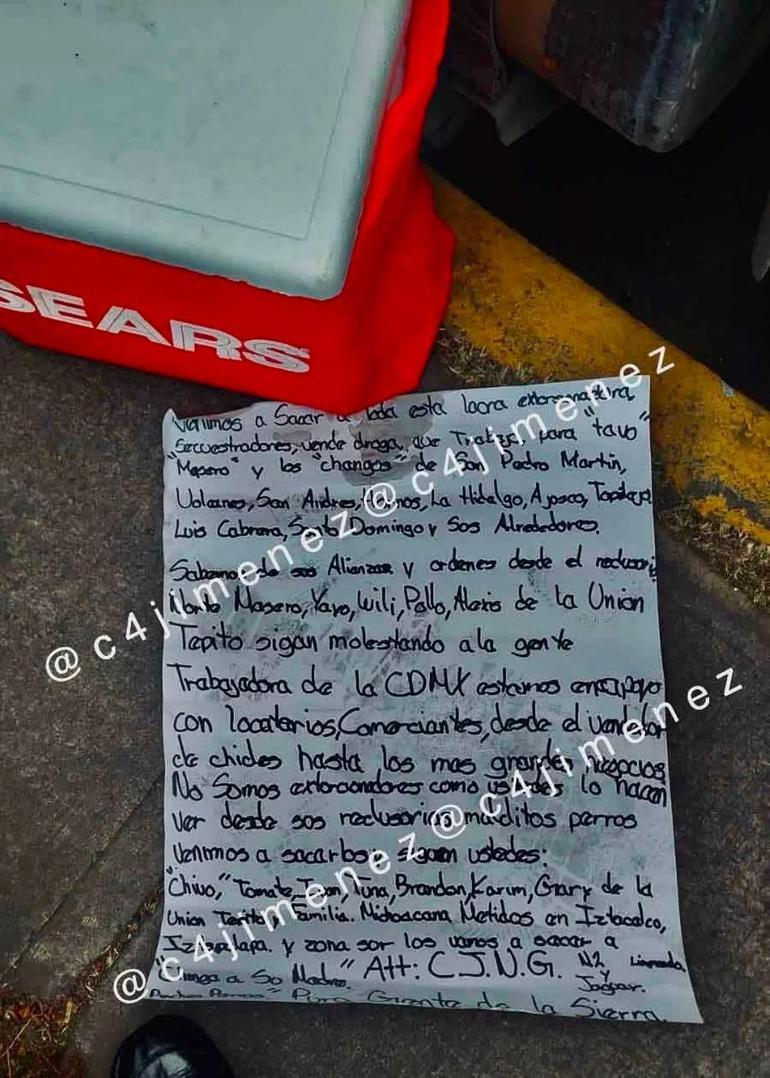 SEARS
Venimos a Sacar a toda esta lacra
Secuestradores, vende droga, que Trabaja para "tavo"
"Mesero" y los "changos" de San Pedro Martin,
San Andres, Hornos, La Hidalgo, Ajusco, Topilejo
Luis Cabrera, Santo Domingo y Sos Alrededores.
Sabemos de sos Alianzas y ordenes desde el reclusorio
Norte Masero, Yayo, Wili, Pollo, Alexis de la Union
Tepito sigan molestando a la gente
Trabajadora de la CDMX estamos en apoyo
con locatarios, Comerciantes, desde el vendedor
de chicles hasta los mas grandes negocios
No Somos extorcionadores como ustedes lo hacen
ver desde sos reclusorios malditos perros
Venimos a sacarlos siguen ustedes:
"Chivo," Tomate, Ivan, Tuna, Brandon, Karim, Gary de la
Union Tepito Familia. Michoacana Metidos en Iztacalco,
Iztapalapa. y zona sor los vamos a sacar a
"Chinga a So Madre" Att: C.J.N.G. N2
y
Jaguar.
Pura Gente de la Sierra.
@c4jimenez@c4jimenez
@c4jimenez@c4jimenez